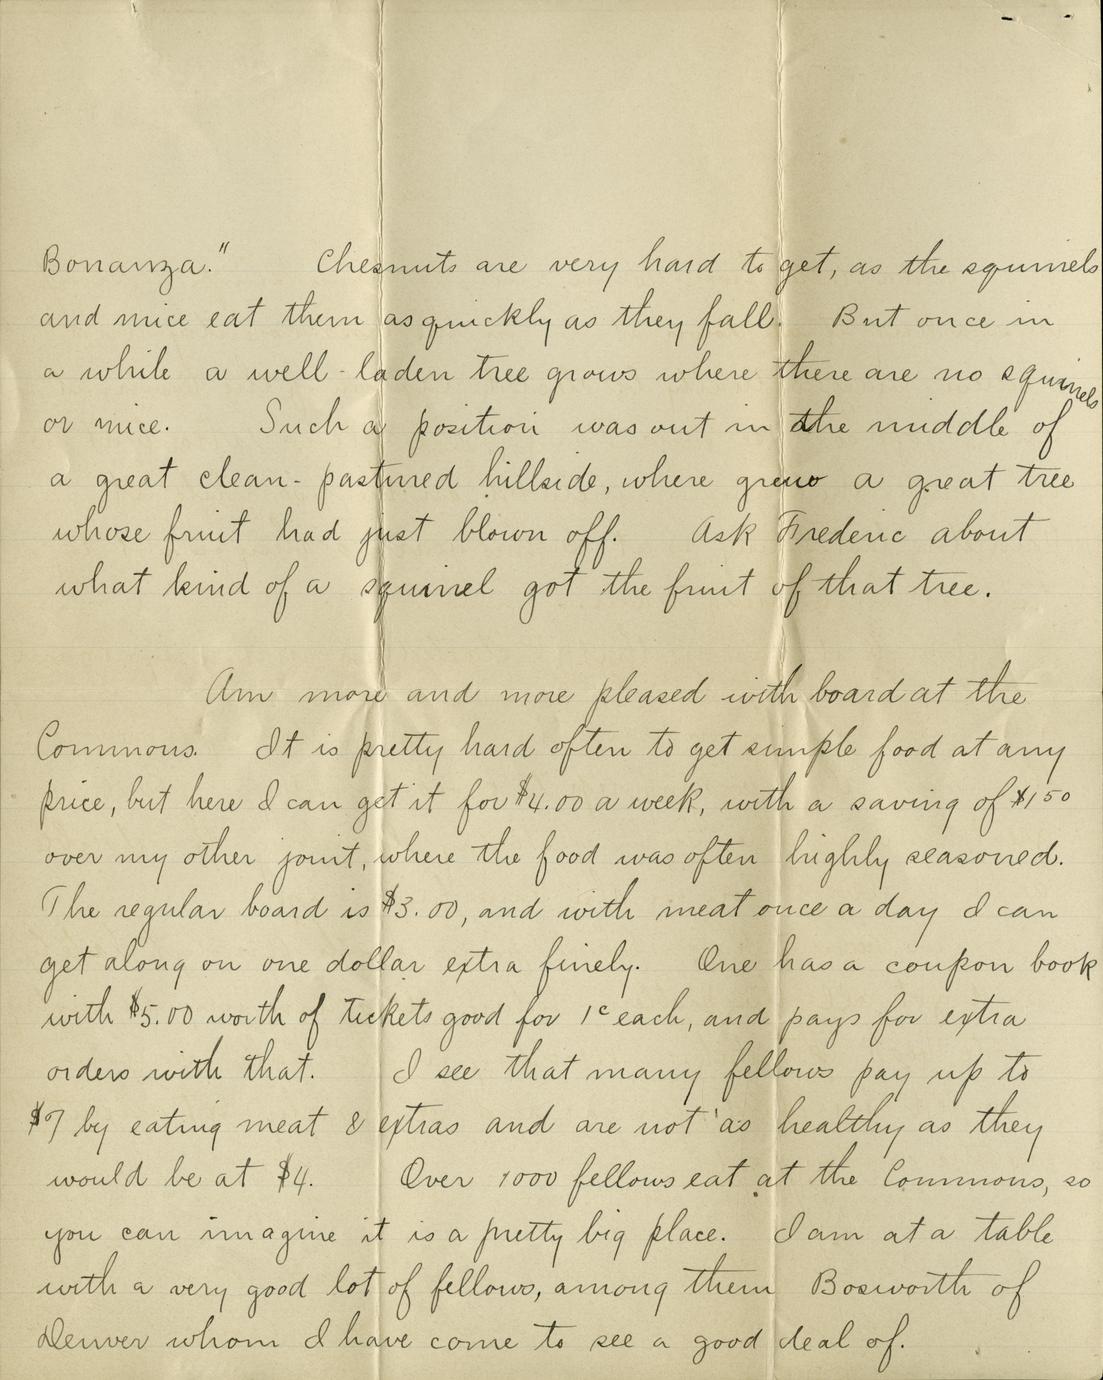 Bonanza." Chesnuts are very hard to get, as the squirrels
and mice eat them as quickly as they fall. But once in
a while a well-laden tree grows where there are no squirrels
or mice. Such a position was out in the middle of
a great clean-pastured hillside, where grew a great tree
whose fruit had just blown off. Ask Frederic about
what kind of a squirrel got the fruit of that tree.
Am more and more pleased with board at the
Commons. It is pretty hard often to get simple food at any
price, but here I can get it for $4.00 a week, with a saving of $1 50
over my other joint, where the food was often highly seasoned.
The regular board is $3.00, and with meat once a day I can
get along on one dollar extra finely. One has a coupon book
with $5.00 worth of tickets good for 1c each, and pays for extra
orders with that. I see that many fellows pay up to
$7 by eating meat & extras and are not as healthy as they
would be at $4. Over 1000 fellows eat at the Commons, so
you can imagine it is a pretty big place. I am at a table
with a very good lot of fellows, among them Bosworth of
Denver whom I have come to see a good deal of.